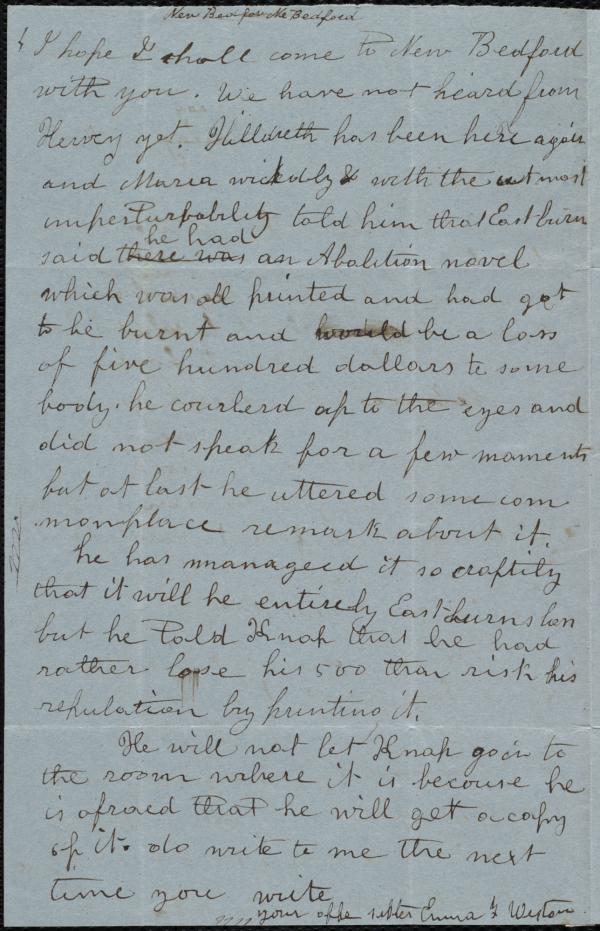 New Bedford New Bedford
I hope I shall come to New Bedford
with you. We have not heard from
Hervey yet. Hilldreth has been here again
and Maria wickedly & with the utmost
imperturbability told him that Eastburn
he had
said there was an Abolition novel
which was all printed and had got
to be burnt and would be a loss
of five hundred dollars to some
body. he coulerd up to the eyes and
did not speak for a few moments
but at last he uttered some com
monplace remark about it.
he has mnanaged it so craftily
that it will be entirely Eastburns loss
but he told Knap that he had
rather lose his 500 than risk his
reputation by printing it.
He will not let Knap go in to
the room where it is becouse he
is afraid that he will get a copy
of it. do write to me the next
time you write
your affe sister Emma F Weston